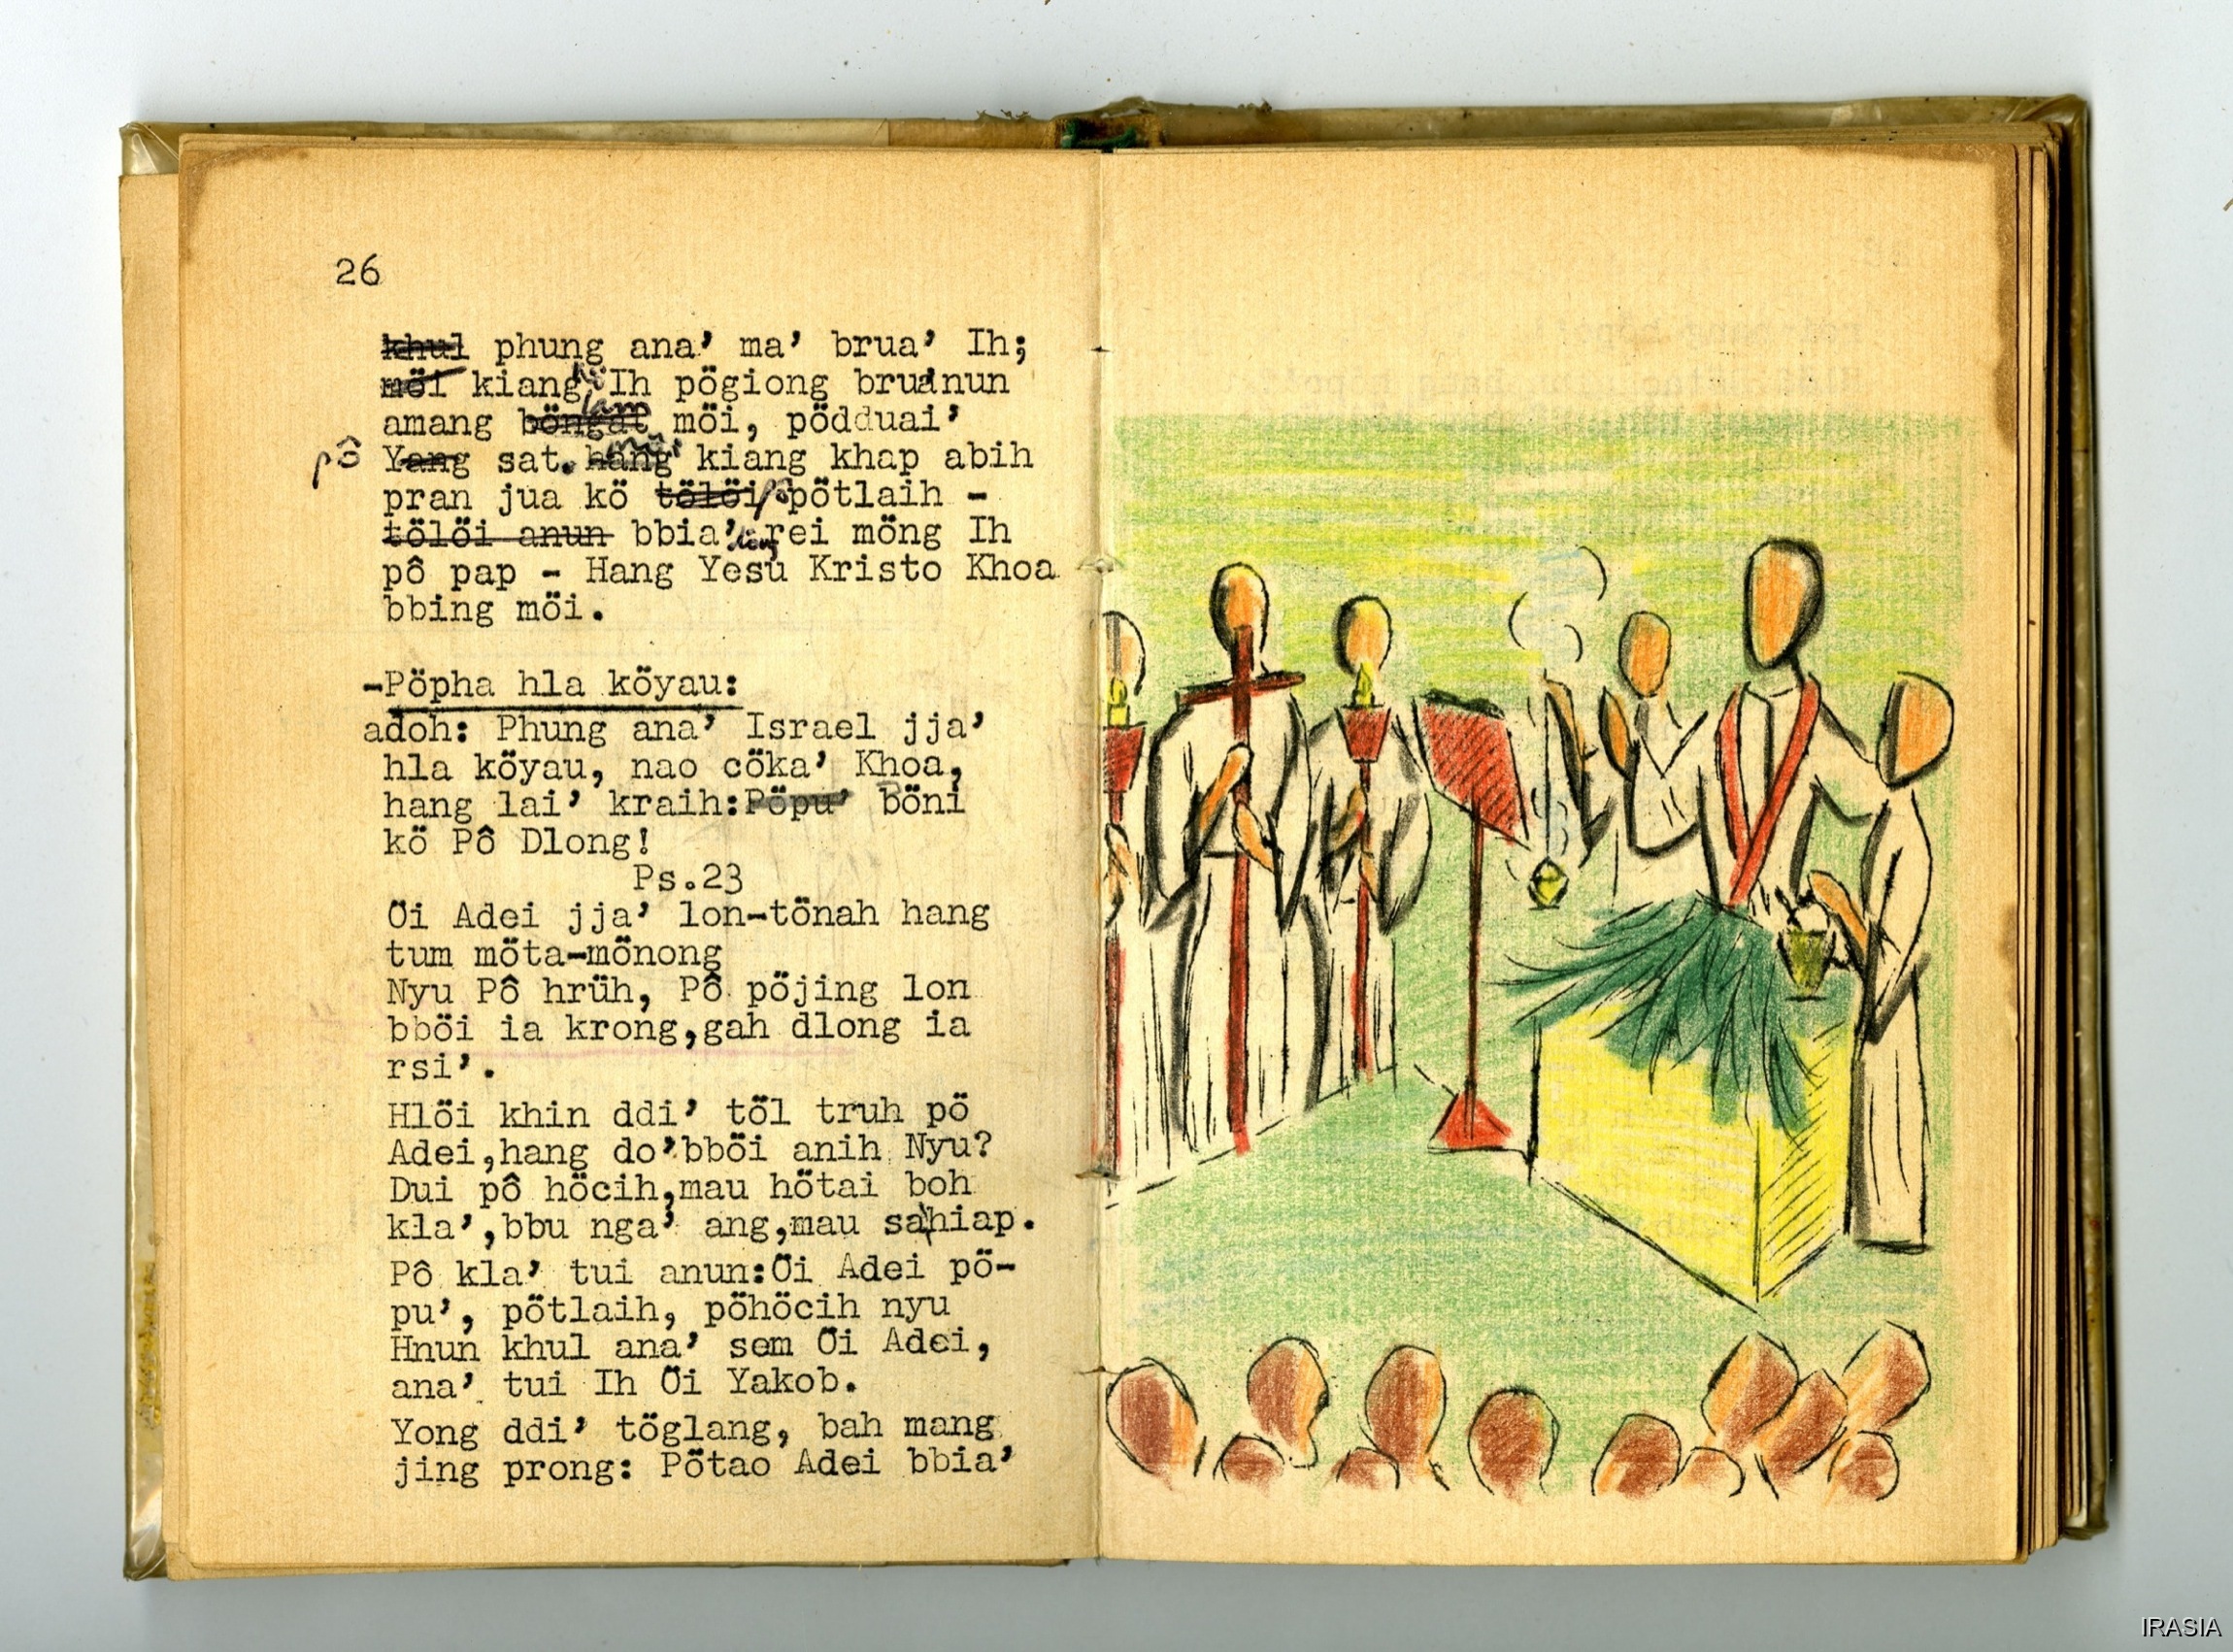 26
khul phung ana’ ma’ brua’ Ih;
möi kiang Ih pögiong bruanun
amang böngat lam möi, pödduai’
pô Yang sat. hang kiang khap abih
pran jua kö tölöi pötlaih -
tölöi anun bbia’ rei möng Ih
pô pap - Hang Yesu Kristo Khoa
bbing möi.
-Pöpha hla köyau:
adoh: Phung ana’ Israel jja’
hla köyau, nao cöka’ Khoa,
hang lai’ kraih:Pöpu’ böni
kö Pô Dlong!
Ps.23
Öi Adei jja’ lon-tönah hang
tum möta-mönong
Nyu Pô hrüh, Pô pöjing lon
bböi ia krong,gah dlong ia
rsi’.
Hlöi khin ddi’ töl truh pö
Adei,hang do’bböi anih Nyu?
Dui pô höcih,mau hötai boh
kla’,bbu nga’ ang,mau sahiap.
Pô kla’ tui anun:Öi Adei pö-
pu’, pötlaih, pöhöcih nyu
Hnun khul ana’ sem Öi Adei,
ana’ tui Ih Öi Yakob.
Yong ddi’ töglang, bah mang
jing prong: Pötao Adei bbia’
IRASIA